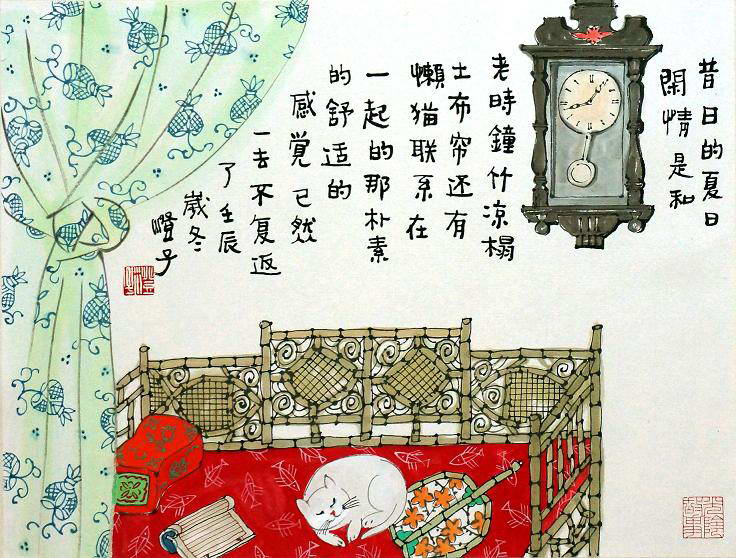 昔日的夏日
閑情是和
老時鐘竹凉榻
土布帘还有
懒猫联系在
一起的那朴素
的舒适的
感觉已然
一去不复返
了壬辰
嵗冬
噔子